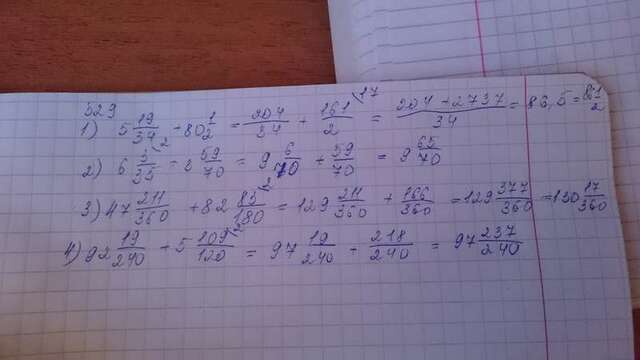 529
1) 5 19/34 + 80 1/2 = 204/34 + 161/2 \17 = (204 + 2737)/34 = 86,5 = 86 1/2
2) 6 3/35 \2 + 3 59/70 = 9 6/70 + 59/70 = 9 65/70
3) 47 211/360 + 82 83/180 \2 = 129 211/360 + 166/360 = 129 377/360 = 130 17/360
4) 92 19/240 + 5 109/120 \2 = 97 19/240 + 218/240 = 97 237/240